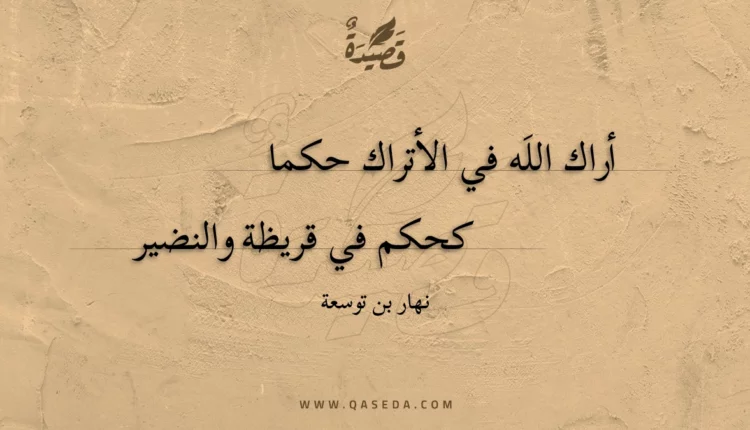 قَصِيدَةٌ
أراك اللَه في الأتراك حكما
كحكم في قريظة والنضير
نهار بن توسعة
WWW.QASEDA.COM